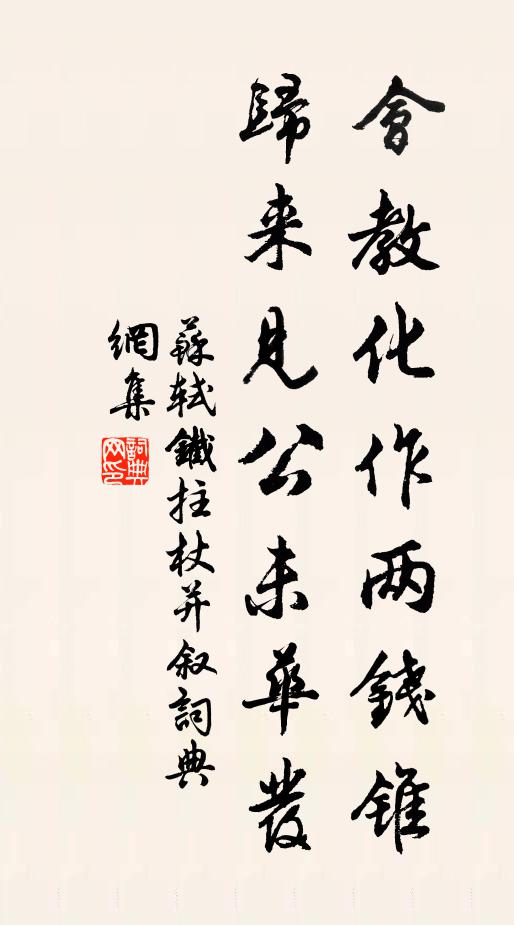 會教化作两錢錐
歸来見公未華發
蘇軾鐵拄杖并叙詞典
網集
詞典
网印